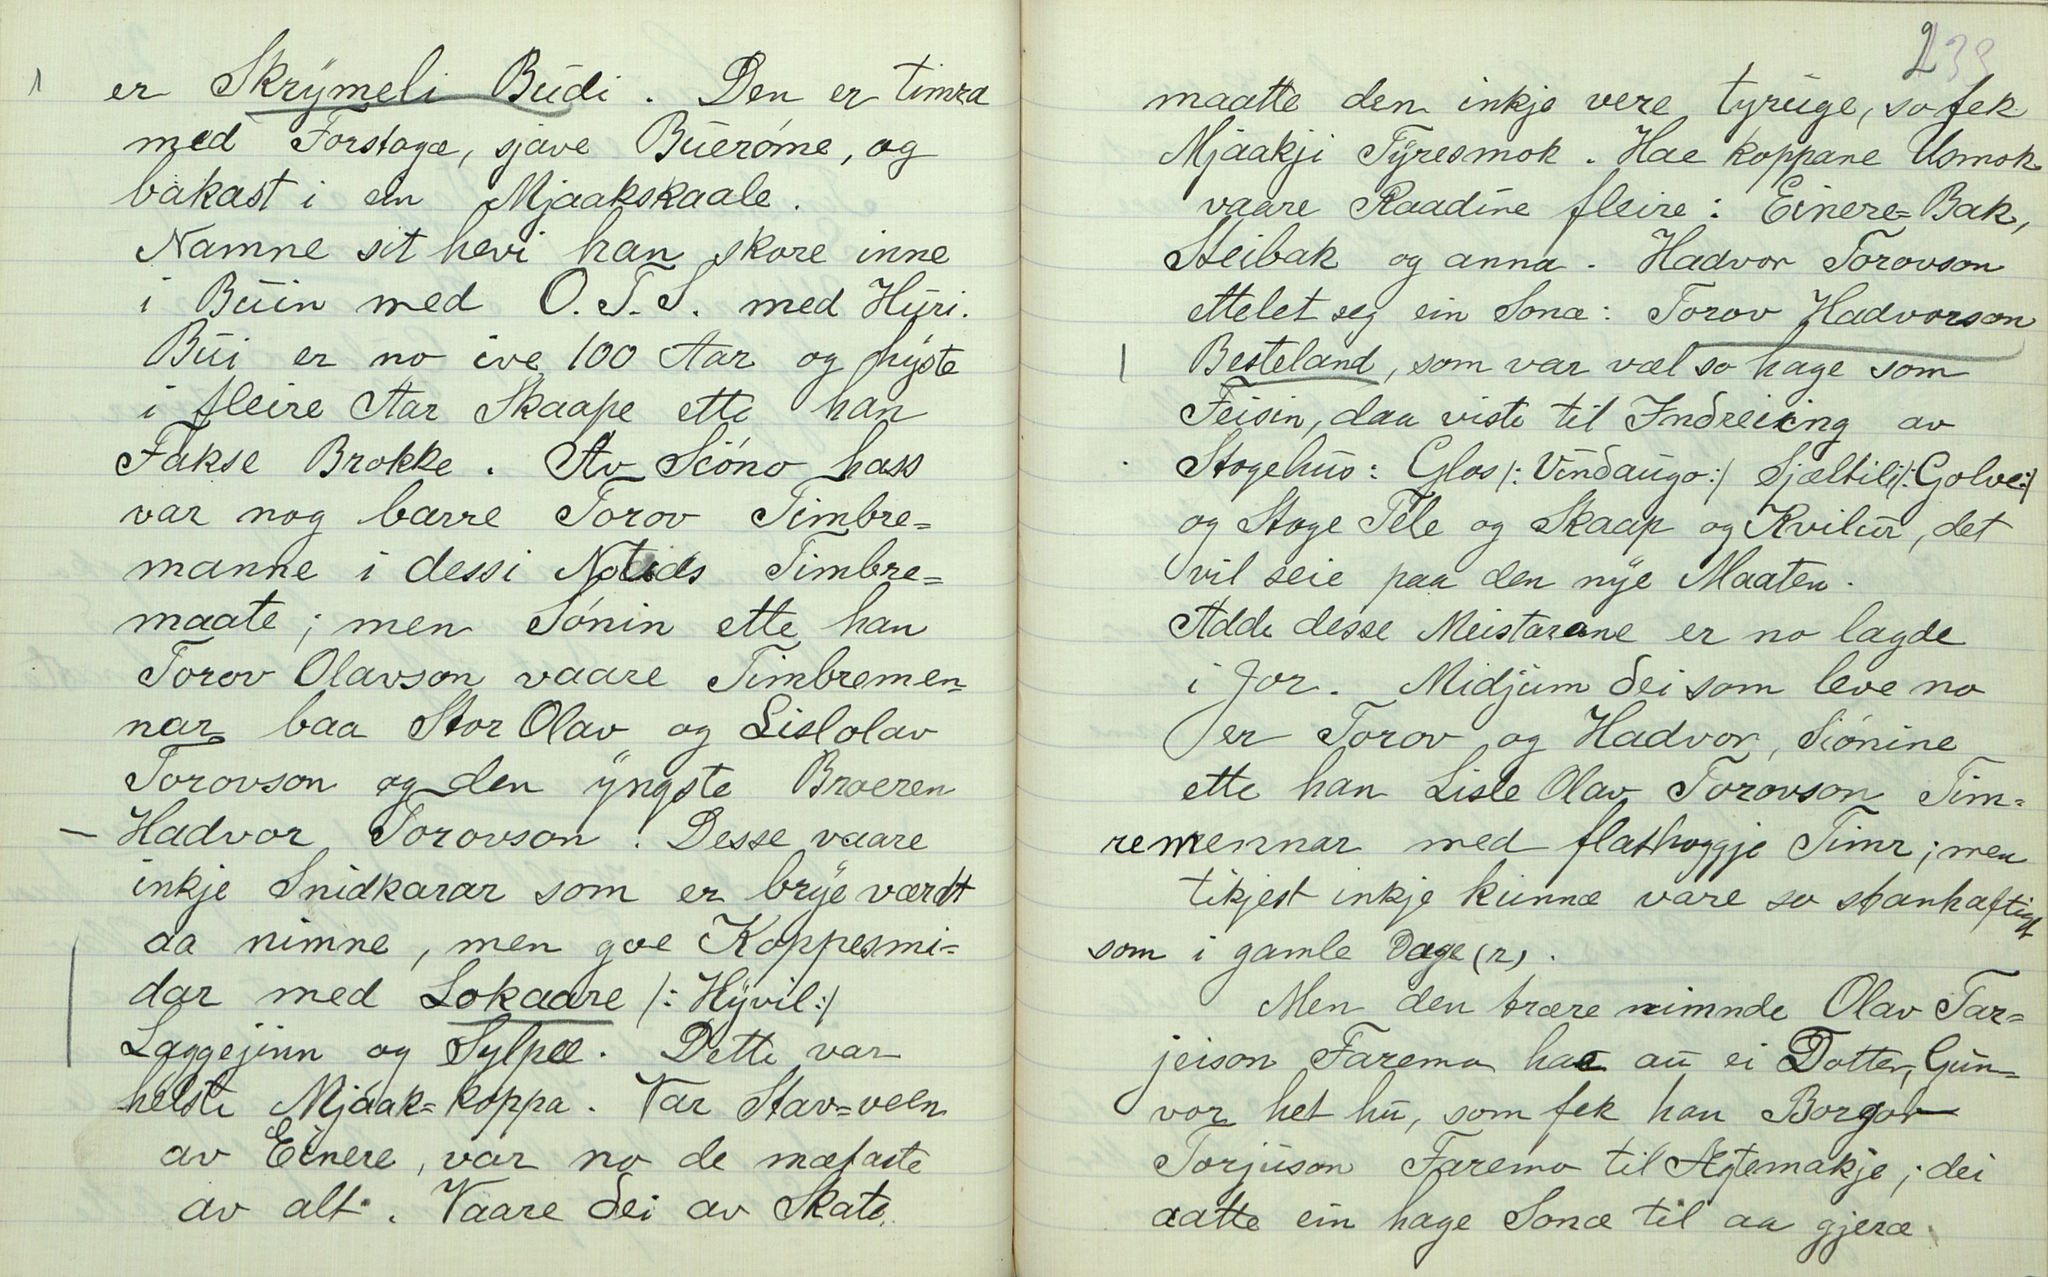 er Skrymeli Budi. Den er timra
med Forstogæ, sjave Buerome, og
bakast i ein Mjaakskaale.
Namne sit hevi han skore inne
i Buin med O. T. S. med Huri.
Bui er no ive 100 Aar og hyste
i fleire Aar Skaape ette han
Fakse Brokke. Av Siono hass
var nog barre Torov Timbre=
manne i dessi Notids Timbre=
maate; men Sonin ette han
Torov Olavson vaare Timbremen=
nar baa Stor Olav og Lislolav
Torovson og den yngste Broeren
Hadvor Torovson. Desse vaare
inkje Snidkarar som er brye værdt
aa nimne, men goe Koppesmi=
dar med Lokaare /: Hyvil :/
Laggejinn og Sylpæ. Dette var
helste Mjaak=koppa. Var Stav=veen
av Einere, var no de mæfaste
av alt. Vaare dei av Skate
233
maatte den inkje vere tyruge, so fek
Mjaakji Tyresmok. Hae koppane Usmok
vaare Raadine fleire: Einere=Bak,
Steibak og anna. Hadvor Torovson
ettelet seg ein Sonæ: Torov Hadvorson
Besteland, som var væl so hage som
Feisin, daa viste til Indreiing av
Stogehus: Glos /: Vindaugo :/ Sjæltili /: Golve :/
og Stoge Tele og Skaap og Kvilur, det
vil seie paa den nye Maaten.
Adde desse Meistarane er no lagde
i Jor. Midjum dei som leve no
er Torov og Hadvor, Sionine
ette han Lisle Olav Torovson Tim=
remennar med flathoggje Timr; men
tikjest inkje kunnæ vare so stanhaftigt
som i gamle Dage (r).
Men den trære nimnde Olav Tar=
jeison Faremo hae au ei Dotter, Gun=
vor het hu, som fek han Borgov
Torjuson Faremo til Ægtemakje; dei
aatte ein hage Sonæ til aa gjeræ